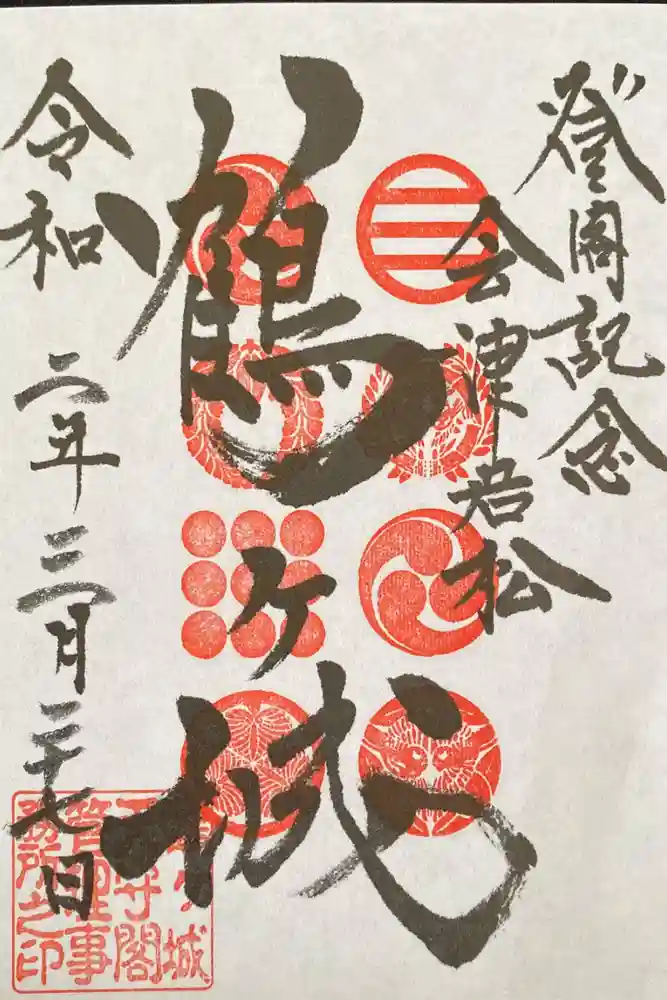 登閣記念
会津若松
鶴ヶ城
令和二年三月二十七日
鶴ヶ城
天守閣
管理事
務所之印